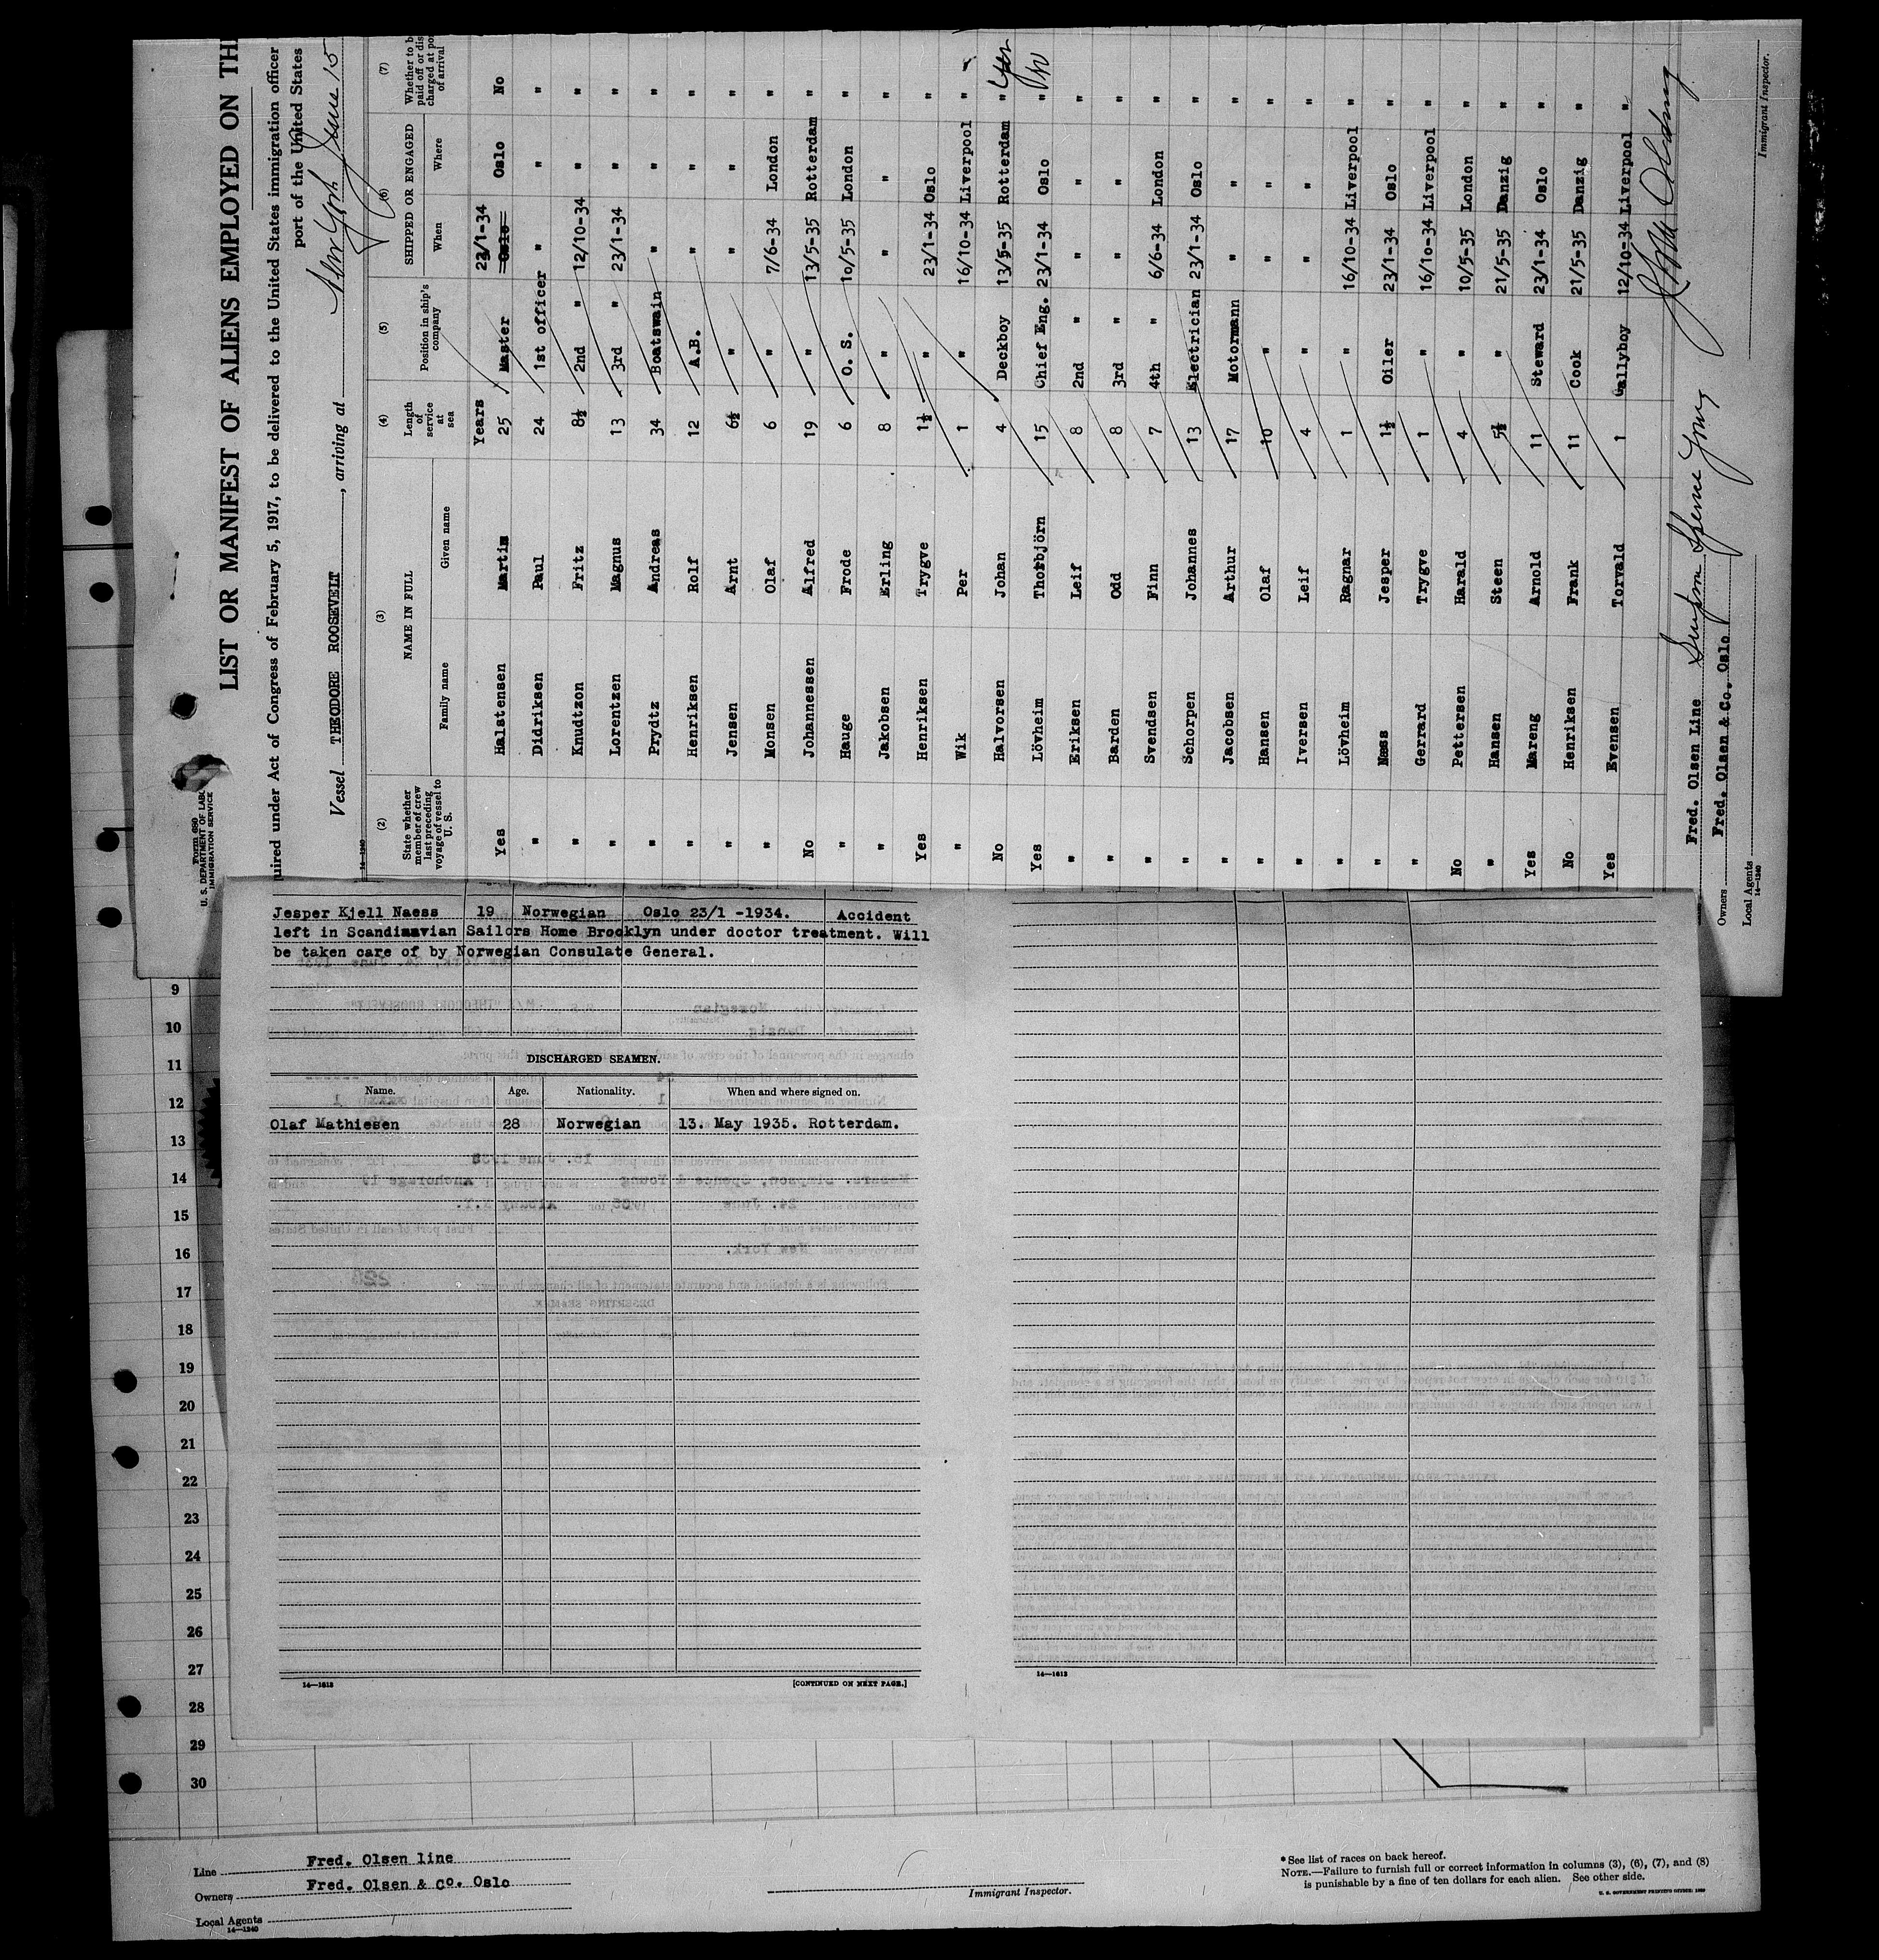 LIST OR MANIFEST OF ALIENS EMPLOYED ON TH
uired under Act of Congress of February 5, 1917, to be delivered to the United States immigration officer
port of the United States
Form 680
U. S. DEPARTMENT OF LABO
IMMIGRATION SERVICE
Vessel THEODORE ROOSEVELT, arriving at New York June 15
14—1240
(2) (3) (4) (5) (6) (7)
State whether member of crew last preceding voyage of vessel to U. S. NAME IN FULL Family name Given name Length of service at sea Position in ship's company SHIPPED OR ENGAGED When Where Whether to b paid off or dis charged at po of arrival
Years
Yes Halstensen Martin 25 Master 23/1-34 Oslo No
Oslo
" Didriksen Paul 24 1st officer " " "
" Knudtzon Fritz 8½ 2nd " 12/10-34 " "
" Lorentzen Magnus 13 3rd " 23/1-34 " "
" Prydtz Andreas 34 Boatswain " " "
" Henriksen Rolf 12 A.B. " " "
" Jensen Arnt 6½ " " " "
" Monsen Olaf 6 " 7/6-34 London "
No Johannessen Alfred 19 " 13/5-35 Rotterdam "
" Hauge Frode 6 O. S. 10/5-35 London "
" Jakobsen Erling 8 " " " "
Yes Henriksen Trygve 1½ " 23/1-34 Oslo "
" Wik Per 1 " 16/10-34 Liverpool "
No Halvorsen Johan 4 Deckboy 13/5-35 Rotterdam " Yes
Yes Lövheim Thorbjörn 15 Chief Eng. 23/1-34 Oslo " No
" Eriksen Leif 8 2nd " " " "
" Barden Odd 8 3rd " " " "
" Svendsen Finn 7 4th " 6/6-34 London "
" Schorpen Johannes 13 Electrician 23/1-34 Oslo "
" Jacobsen Arthur 17 Motormann " " "
" Hansen Olaf 10 " " " "
" Iversen Leif 4 " " " "
" Lövheim Ragnar 1 " 16/10-34 Liverpool "
" Næss Jesper 1½ Oiler 23/1-34 Oslo "
" Gerrard Trygve 1 " 16/10-34 Liverpool "
No Pettersen Harald 4 " 10/5-35 London "
" Hansen Steen 5½ " 21/5-35 Danzig "
Yes Mareng Arnold 11 Steward 23/1-34 Oslo "
No Henriksen Frank 11 Cook 21/5-35 Danzig "
Yes Evensen Torvald 1 Gallyboy 12/10-34 Liverpool "
Fred. Olsen Line Simpson Spence Young
Owners Fred. Olsen & Co. Oslo
Local Agents
14—1240
Immigrant Inspector.
Jesper Kjell Naess 19 Norwegian Oslo 23/1 -1934. Accident
left in Scandinavian Sailors Home Brooklyn under doctor treatment. Will
be taken care of by Norwegian Consulate General.
DISCHARGED SEAMEN.
Name. Age. Nationality. When and where signed on.
Olaf Mathiesen 28 Norwegian 13. May 1935. Rotterdam.
14—1613
[CONTINUED ON NEXT PAGE.]
14—1613
9
10
11
12
13
14
15
16
17
18
19
20
21
22
23
24
25
26
27
28
29
30
Line Fred. Olsen line
Owners Fred. Olsen & Co. Oslo
Local Agents
14—1240
Immigrant Inspector.
* See list of races on back hereof.
NOTE.—Failure to furnish full or correct information in columns (3), (6), (7), and (8)
is punishable by a fine of ten dollars for each alien. See other side.
U. S. GOVERNMENT PRINTING OFFICE: 1929